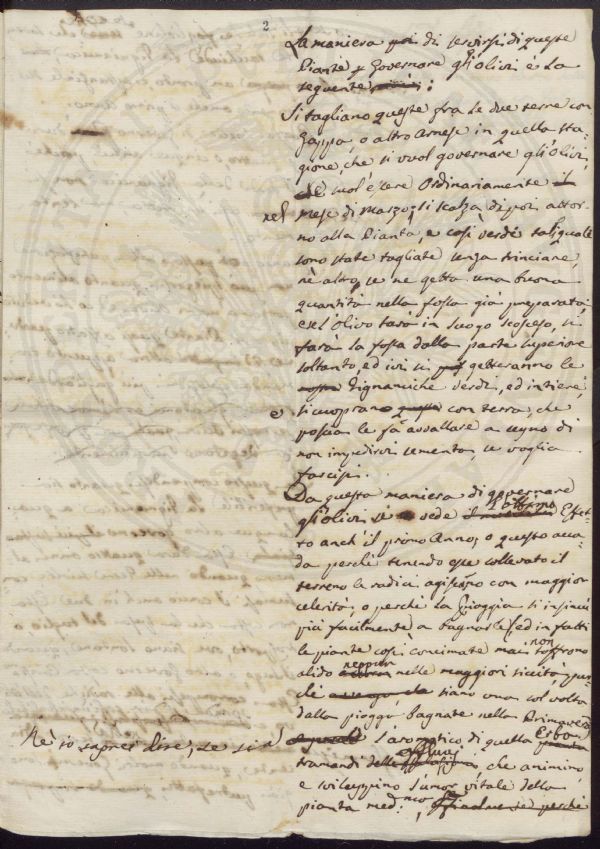 2
La maniera poi di servirsi di queste
Piante p Governare gl'Olivi è La
seguente
Si tagliano queste fra Le due terre con
Zappa, o altro Arnese in quella sta-
gione, che si vuol governare gl'Olivi,
che suol essere Ordinariamente il
nel Mese di Marzo; si scalza di poi attor-
no alla Pianta, e così verdi tali quali
sono state tagliate senza trinciare,
nè altro, se ne getta una buona
quantità nella fossa già preparata,
e se l'Olivo sarà in luogo scosceso, si
farà la fossa dalla parte superiore
soltanto, ed ivi si getteranno le
Tignamiche verdi, ed intiere,
e si cuoprano queste con terra, che
poscia le fà avvallare a segno di
non impedirsi sementa, se voglia
farcisi.
Da questa maniera di governare
gl'Olivi si vede Effet-
to anch'il primo Anno, o questo acca-
da perchè tenendo esse sollevato il
terreno le radici agiscano con maggior
celerità, o perchè La Pioggia s'insinui
più facilmente a bagnarle, (ed in fatti
le piante così concimate mai non soffrono
alido neppur nelle maggiori siccità, pur-
chè siano una sol volta
dalla pioggia bagnate nella Primavera)
Nè io saprei dire, se sia l'aromatico di quella Erba
tramandi delle effluvj che animino,
e sviluppino l'umor vitale della
pianta med: